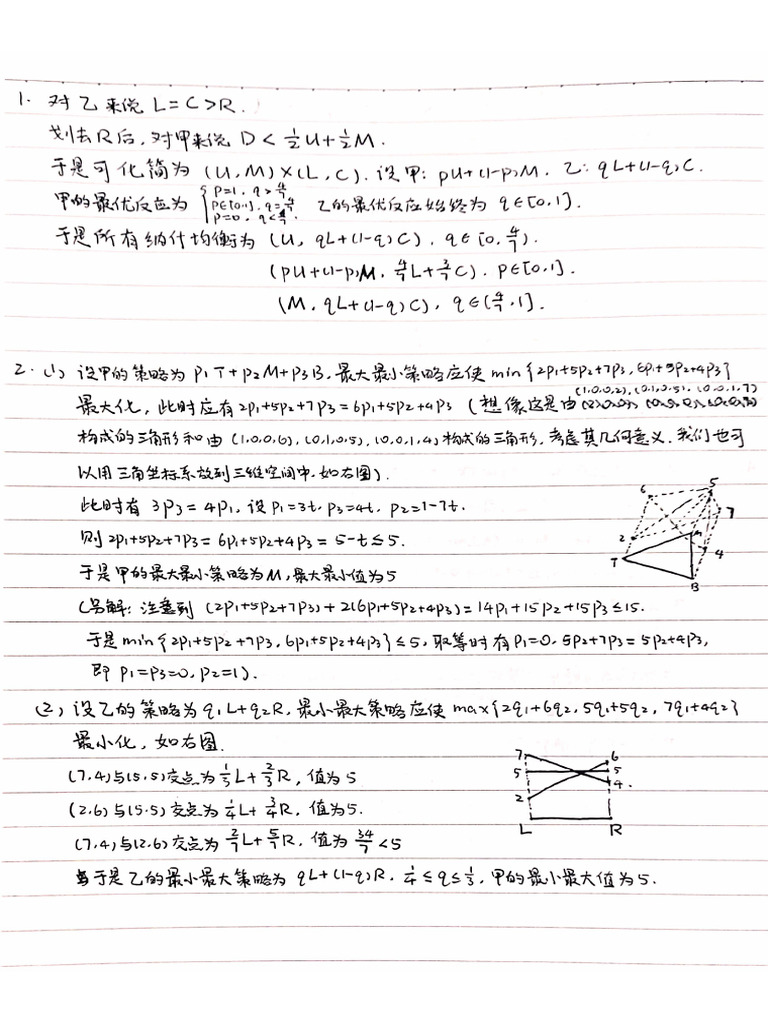 1. 对乙来说 L=C>R.
划去R后,对甲来说 D < 1/2 U + 1/2 M.
于是可化简为 (U,M)×(L,C). 设甲: pU+(1-p)M. 乙: qL+(1-q)C.
甲的最优反应为 { p=1, q>4/7
p∈[0,1], q=4/7
p=0, q<4/7. 乙的最优反应始终为 q∈[0,1].
于是所有纳什均衡为 (U, qL+(1-q)C). q∈[0, 4/7).
(pU+(1-p)M, 4/7 L+3/7 C). p∈[0,1].
(M, qL+(1-q)C), q∈(4/7, 1].
2. (1) 设甲的策略为 p₁T+p₂M+p₃B, 最大最小策略应使 min{2p₁+5p₂+7p₃, 6p₁+5p₂+4p₃}
最大化, 此时应有 2p₁+5p₂+7p₃=6p₁+5p₂+4p₃ (想像这是由 (1,0,0,2), (0,1,0,5), (0,0,1,7)
构成的三角形和由 (1,0,0,6), (0,1,0,5), (0,0,1,4) 构成的三角形, 考虑其几何意义. 我们也可
以用三角坐标系放到三维空间中, 如右图).
此时有 3p₃=4p₁, 设 p₁=3t, p₃=4t, p₂=1-7t.
则 2p₁+5p₂+7p₃=6p₁+5p₂+4p₃=5-t≤5.
于是甲的最大最小策略为M, 最大最小值为5
(另解: 注意到 (2p₁+5p₂+7p₃)+2(6p₁+5p₂+4p₃)=14p₁+15p₂+15p₃≤15.
于是 min{2p₁+5p₂+7p₃, 6p₁+5p₂+4p₃}≤5, 取等时有 p₁=0, 5p₂+7p₃=5p₂+4p₃,
即 p₁=p₃=0, p₂=1).
6 5
2 7
T M 4
B
(2) 设乙的策略为 q₁L+q₂R, 最小最大策略应使 max{2q₁+6q₂, 5q₁+5q₂, 7q₁+4q₂}
最小化, 如右图.
(7.4)与(5.5)交点为 1/3 L+2/3 R, 值为5
(2.6)与(5.5)交点为 1/4 L+3/4 R, 值为5.
(7.4)与(2.6)交点为 2/7 L+5/7 R, 值为 34/7 <5
于是乙的最小最大策略为 qL+(1-q)R, 1/4≤q≤1/3, 甲的最小最大值为5.
7 6
5 5
2 4.
L R